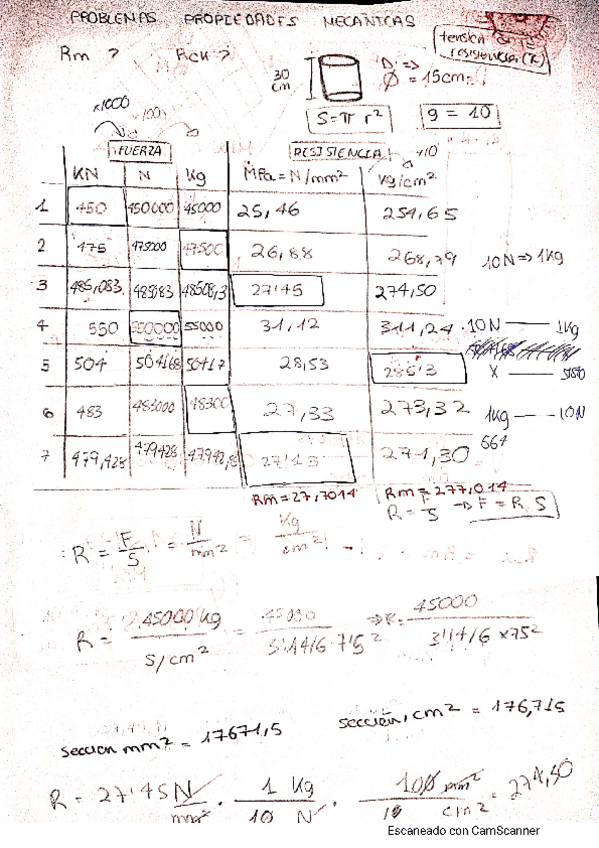 PROBLEMAS PROPIEDADES MECANICAS
tension o resistencia (R)
Rm ? Rck ?
30 cm
D =>
Ø = 15cm
S = π r² g = 10
x1000
x100
FUERZA RESISTENCIA x10
KN N Kg MPa = N/mm² Kg/cm²
1 450 450000 45000 25,46 254,65
2 475 475000 47500 26,88 268,79 10N => 1Kg
3 485,083 485083 48508,3 27'45 274,50
4 550 550000 55000 31,12 311,24 10N — 1Kg
5 504 504168 50417 28,53 285'3 X —
6 483 483000 48300 27,33 273,32 1Kg — 10N
7 479,428 479428 47942,8 27'13 271,30
Rm = 27,7014 Rm = 277,014
R = F/S -> F = R. S
R = F/S = N/mm² = Kg/cm²
R = 45000 kg / S/cm² = 45000 / 3'1416·7'5² => R = 45000 / 3'1416 x 75²
seccion mm² = 17671,5 sección, cm² = 176,715
R = 27'45 N/mm² · 1 Kg / 10 N · 100 mm² / cm² = 274,50
Escaneado con CamScanner